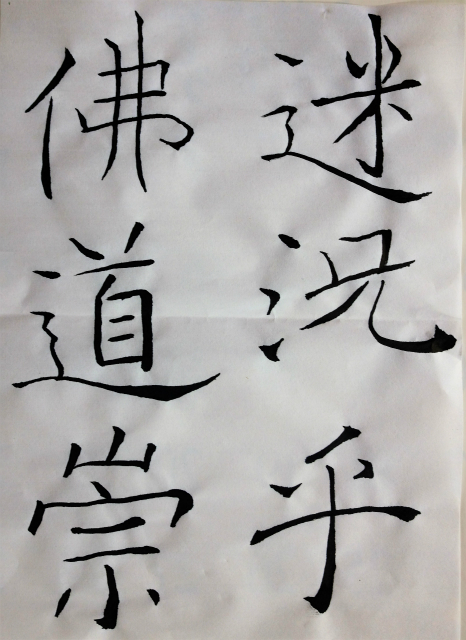 迷況乎
佛道崇